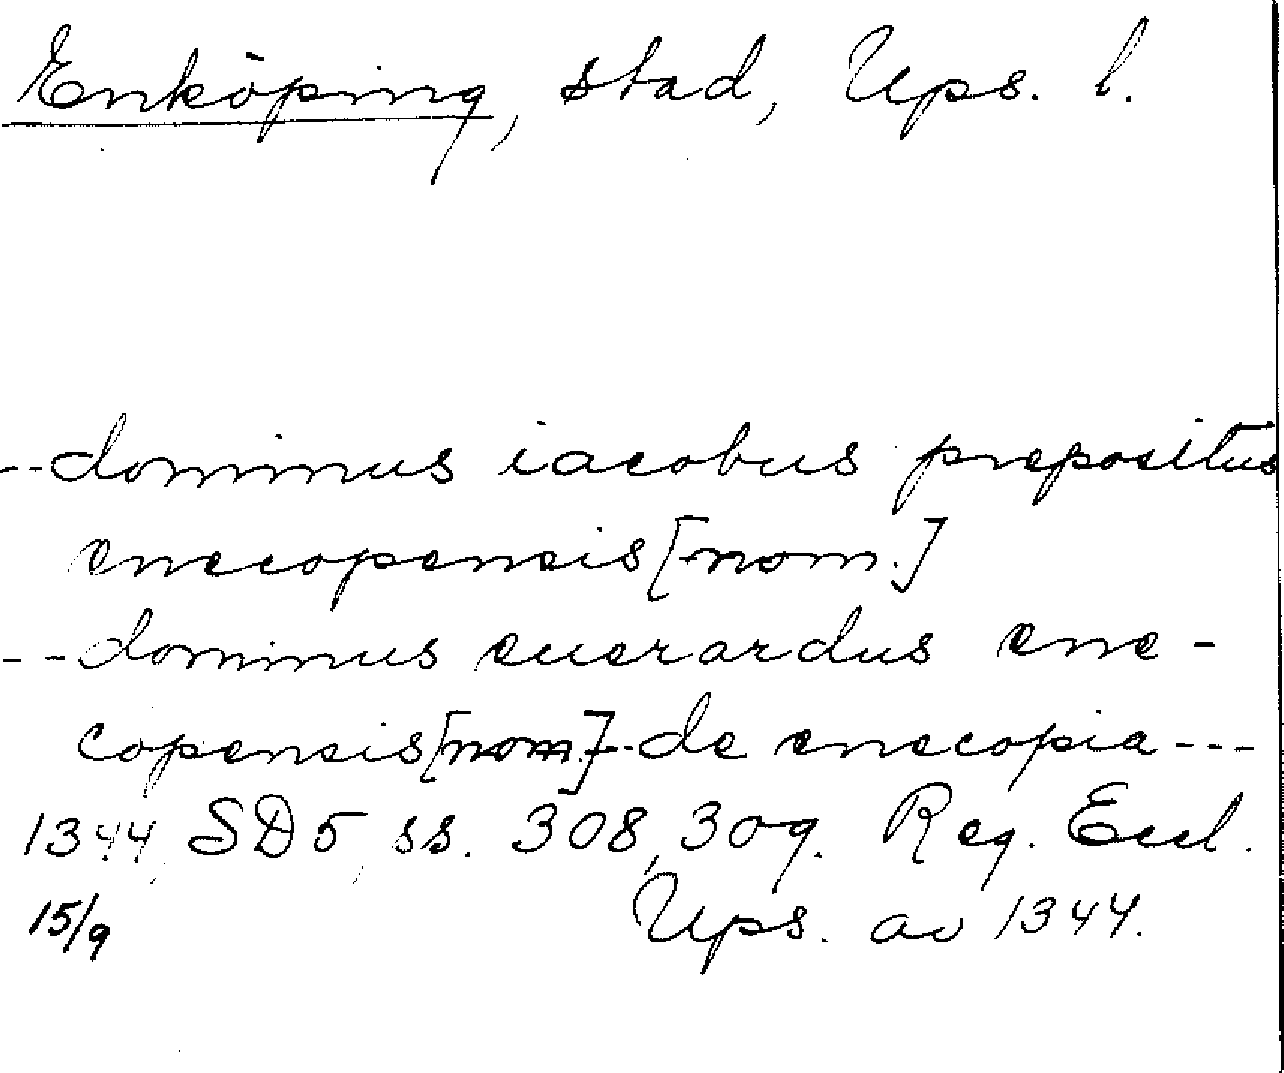 Enköping, stad, Ups. l.
--dominus iacobus prepositus
enecopensis [nom.]
--dominus euerardus ene-
copensis [nom.]--de enecopia---
1344, SD 5, ss. 308, 309. Reg. Eccl.
15/9 Ups. av 1344.